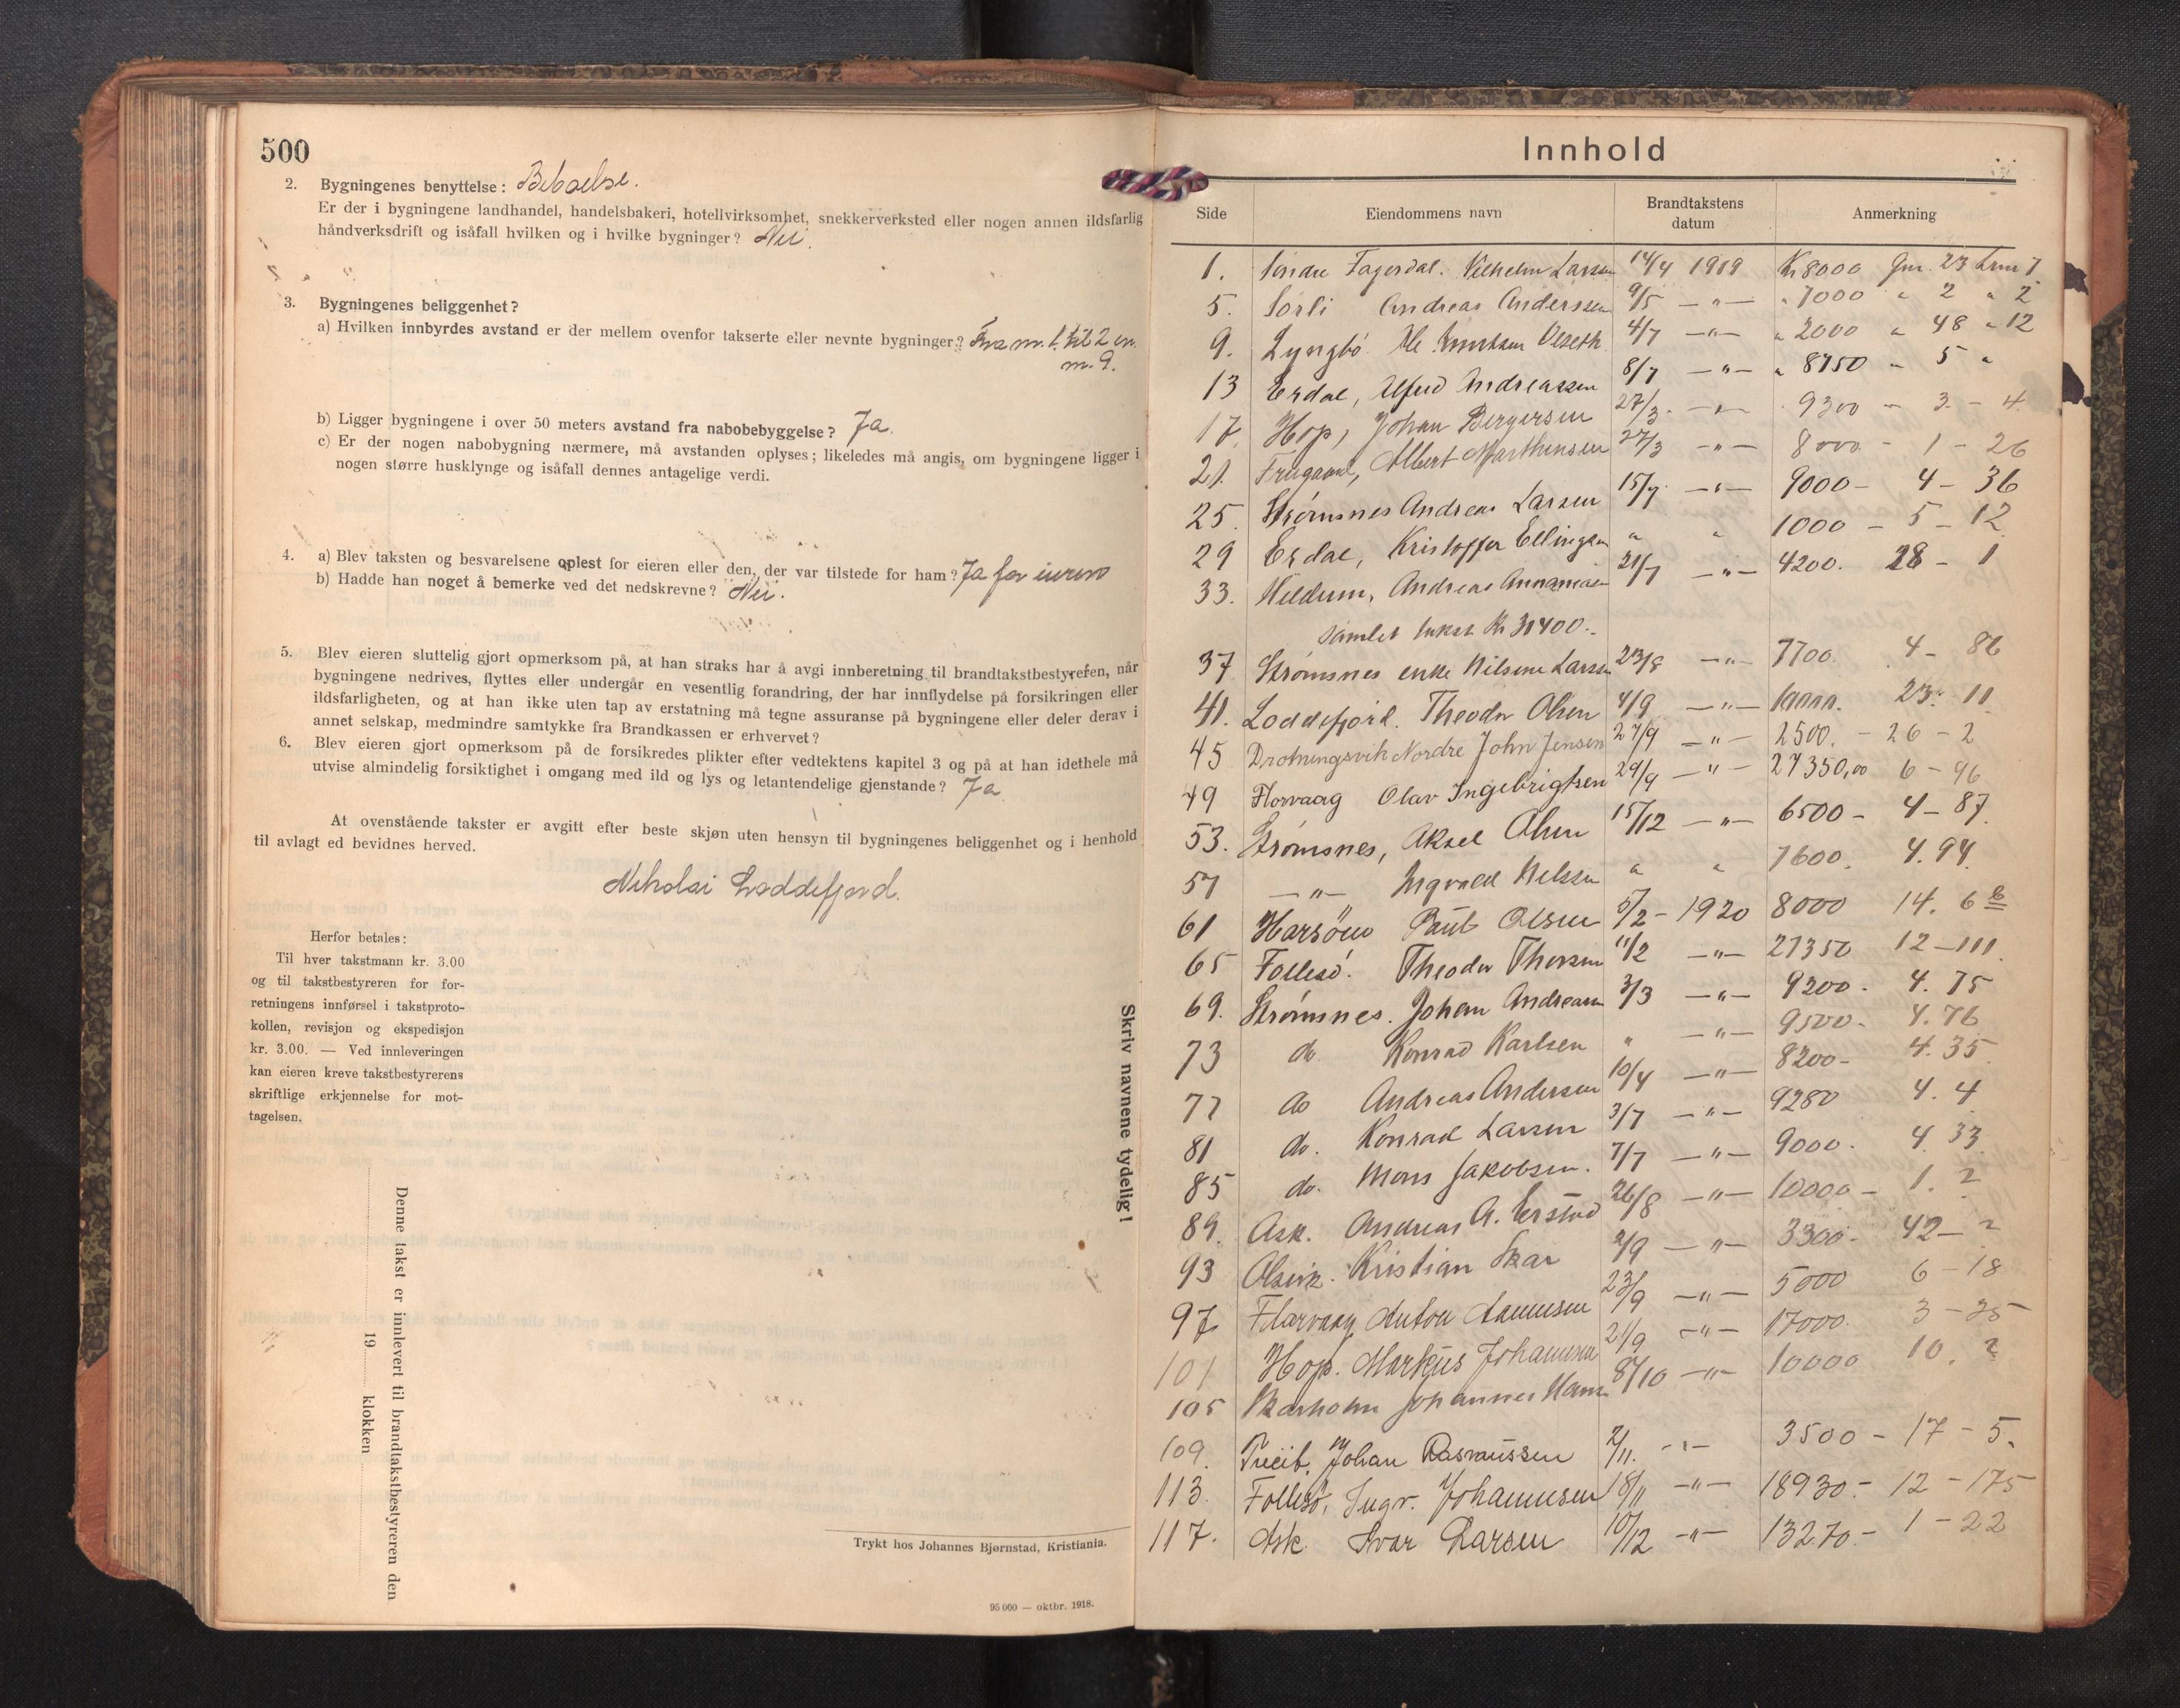 500
2. Bygningenes benyttelse: Beboelse.
Er der i bygningene landhandel, handelsbakeri, hotellvirksomhet, snekkerverksted eller nogen annen ildsfarlig
håndverksdrift og isåfall hvilken og i hvilke bygninger? Nei.
3. Bygningenes beliggenhet?
a) Hvilken innbyrdes avstand er der mellem ovenfor takserte eller nevnte bygninger? Fra nr. 1 til 2 er
m. 9.
b) Ligger bygningene i over 50 meters avstand fra nabobebyggelse? Ja.
c) Er der nogen nabobygning nærmere, må avstanden oplyses; likeledes må angis, om bygningene ligger i
nogen større husklynge og isåfall dennes antagelige verdi.
4. a) Blev taksten og besvarelsene oplest for eieren eller den, der var tilstede for ham? Ja for eieren
b) Hadde han noget å bemerke ved det nedskrevne? Nei.
5. Blev eieren sluttelig gjort opmerksom på, at han straks har å avgi innberetning til brandtakstbestyreren, når
bygningene nedrives, flyttes eller undergår en vesentlig forandring, der har innflydelse på forsikringen eller
ildsfarligheten, og at han ikke uten tap av erstatning må tegne assuranse på bygningene eller deler derav i
annet selskap, medmindre samtykke fra Brandkassen er erhvervet?
6. Blev eieren gjort opmerksom på de forsikredes plikter efter vedtektens kapitel 3 og på at han idethele må
utvise almindelig forsiktighet i omgang med ild og lys og letantendelige gjenstande? Ja
At ovenstående takster er avgitt efter beste skjøn uten hensyn til bygningenes beliggenhet og i henhold
til avlagt ed bevidnes herved.
Nikolai Loddefjord.
Herfor betales:
Til hver takstmann kr. 3.00
og til takstbestyreren for for-
retningens innførsel i takstproto-
kollen, revisjon og ekspedisjon
kr. 3.00. — Ved innleveringen
kan eieren kreve takstbestyrerens
skriftlige erkjennelse for mot-
tagelsen.
Denne takst er innlevert til brandtakstbestyreren den
19 klokken
Trykt hos Johannes Bjørnstad, Kristiania.
95 000 — oktbr. 1918.
Skriv navnene tydelig!
Innhold
Side Eiendommens navn Brandtakstens datum Anmerkning
1. Søndre Fagerdal. Vilhelm Larsen 14/4 1919 Kr 8000 Gnr. 23 brnr 7
5. Sørli Andreas Anderssen 9/5 —"— " 7000 " 2 " 2
9. Lyngbø Ole Knutsen Olseth 4/7 —"— " 2000 " 48 " 12
13 Erdal, Alfred Andreassen 8/7 —"— " 8750 " 5 "
17. Hop, Johan Bergersen 27/3 —"— 9300 — 3 — 4
21. Albert Marthinsen 27/3 —"— 8000 — 1 — 26
25. Strømsnes Andreas Larsen 15/7 —"— 9000 — 4 — 36
29 Erdal, Kristoffer Ellingsen " " 1000 — 5 — 12
33. Andreas 21/7 —"— 4200. 28 — 1
Samlet takst Kr 31400..
37 Strømsnes enke Nilsine Larsen 23/8 —"— 7700. 4 — 86
41. Loddefjord. Theodor Olsen 4/9 —"— 23. 11.
45 Drotningsvik Nordre John Jensen 27/9 —"— 2500. — 26 — 2
49 Florvaag Olav Ingebrigtsen 29/9 —"— 27350,00 6 — 96
53. Strømsnes, Aksel Olsen 15/12 —"— 6500 — 4 — 87.
57 —"— Ingvald Nilsen " " 7600. 4. 94.
61 Paul Olsen 5/2 — 1920 8000 14. 6 b
65 Follesø. Theodor Thorsen 11/2 —"— 21350 12 — 111.
69. Strømsnes. Johan Andreasen 3/3 —"— 9200. 4. 75
73 do. Konrad Karlsen " —"— 9500 — 4. 76
77 do Andreas Andersen 10/4 —"— 8200 — 4. 35
81 do. Konrad Larsen 3/7 —"— 9280 4. 4
85 do. Mons Jakobsen. 7/7 —"— 9000. 4. 33
89. Ask. Andreas A. Erstad 26/8 —"— 10000 — 1. ?
93 Olsvik. Kristian Skar 2/9 —"— 3300 — 42 — ?
97 Florvaag Anton 23/9 —"— 5000 6 — 18
101 Hop. Markus Johannesen 21/9 —"— 17000. 3 — 25
105 Skarholm Johannes Hansen 8/10 —"— 10000 10. ?
109. Johan Rasmussen 2/11. —"— 3500 — 17 — 5.
113. Follesø, Ingv. Johannesen 18/11 —"— 18930 — 12 — 175
117. Ask Ivar Larsen 10/12 —"— 13270 — 1 — 22